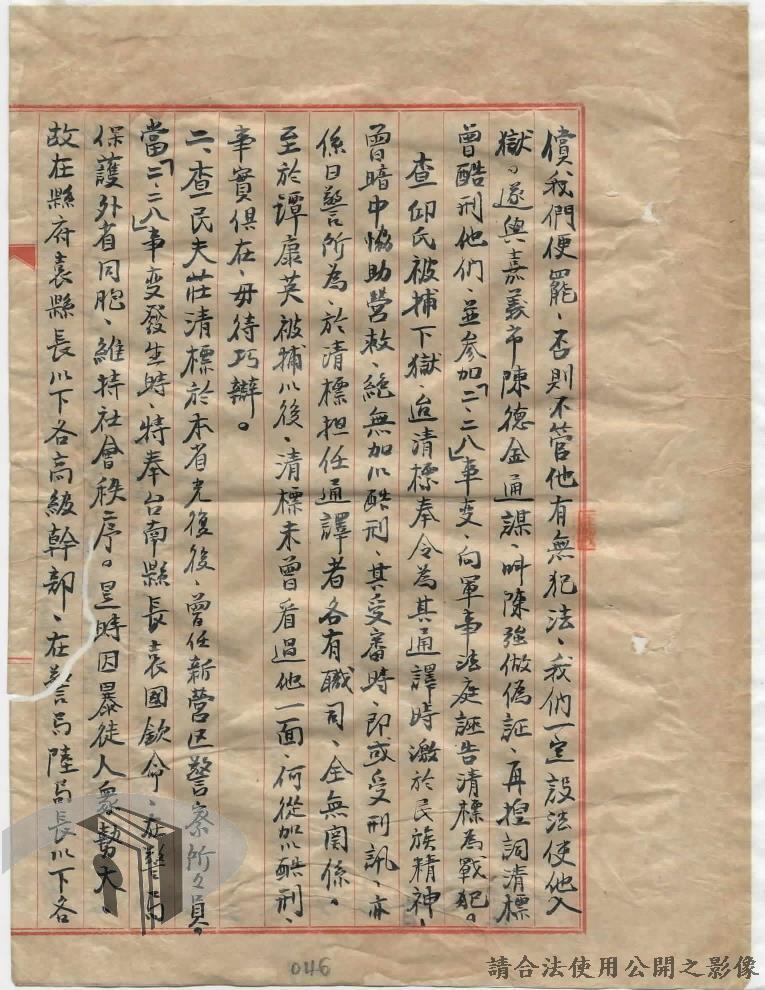 償我們便罷、否則不管他有無犯法、我們一定設法使他入
獄。遂與嘉義市陳德金通謀、叫陳強做偽証、再捏詞清標
曾酷刑他們、並參加「二、二八」事変、向軍事法庭誣告清標為戰犯。
查邱氏被捕下獄、迨清標奉令為其通譯時激於民族精神、
曾暗中協助營救、絕無加以酷刑、其受審時、即或受刑訊、亦
係日警所為、於清標担任通譯者各有職司、全無関係。
至於譚康英被捕以後、清標未曾看過他一面、何從加以酷刑、
事實俱在、毋待巧辯。
二、查民夫莊清標於本省光復後、曾任新營区警察所々員。
當「二、二八」事変發生時、特奉台南縣長袁國欽命、在警局
保護外省同胞、維持社會秩序。是時因暴徒人衆勢大、
故在縣府袁縣長以下各高級幹部、在警局陸局長以下各
046
請合法使用公開之影像